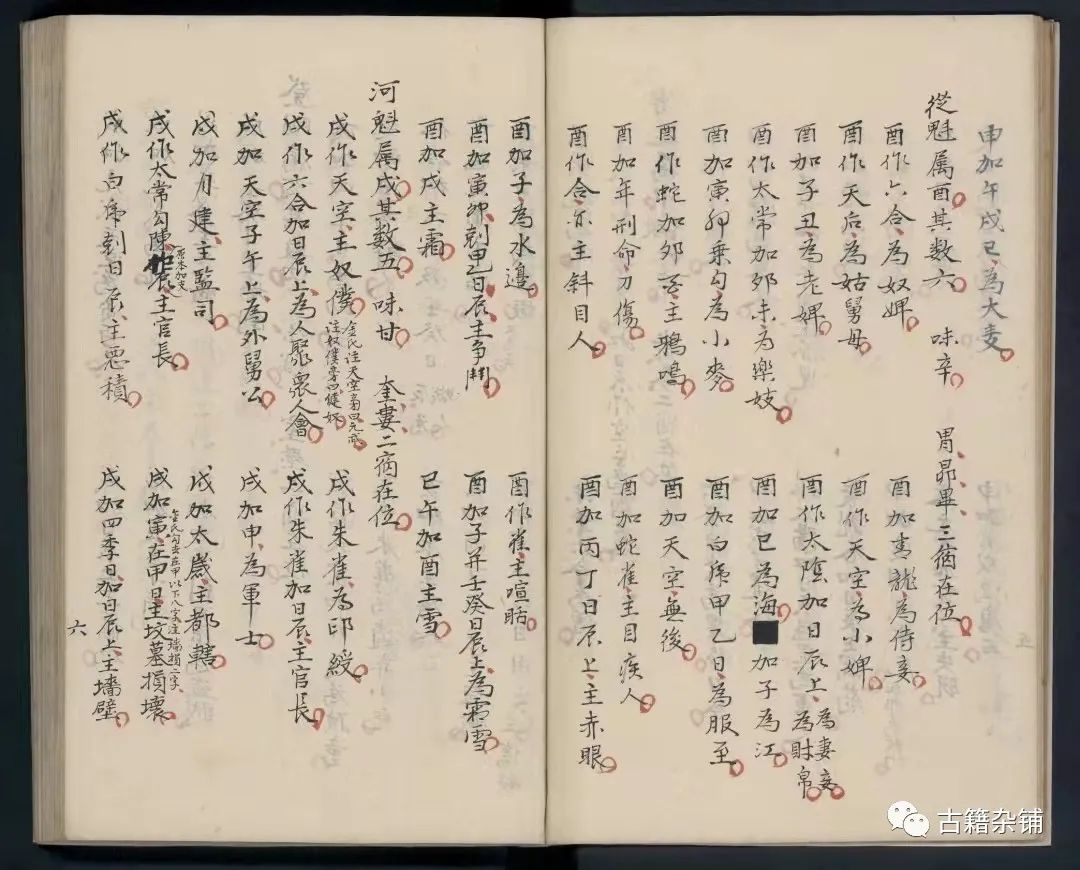 申加午戌巳為大麦
從魁属酉其数六　味辛　胃昴畢三宿在位
酉作六合為奴婢　酉加青龍為侍妾
酉作天后為姑舅母　酉作天空為小婢
酉加子丑為老婢　酉作太陰加日辰上為妻妾為財帛
酉作太常加卯未為樂妓　酉加巳為海■加子為江
酉加寅卯乗勾為小麥　酉加白虎甲乙日為服至
酉作蛇加卯酉主鴉鳴　酉加天空無後
酉加年刑命刀傷　酉加蛇雀主目疾人
酉作合亦主斜目人　酉加丙丁日辰上主赤眼
酉加子為水邊　酉作雀主喧聒
酉加寅卯刻乙日辰主争鬥　酉加子并壬癸日辰上為霜雪
酉加戌主霜　巳午加酉主雪
河魁属戌其数五　味甘　奎婁二宿在位
戌作天空主奴僕　戌作朱雀為印綬
金氏注天空旁曰元武
注奴僕旁曰健奴
戌作六合加日辰上為人聚衆人會　戌作朱雀加日辰主官長
戌加天空子午上為外舅公　戌加申為軍士
戌加月建主監司　戌加太歲主都轄
戌作太常勾陳辰主官長　戌加寅在甲日主坟墓損壞
原本加支
金氏勾去在甲以下八字注墻損二字
戌作白虎刻日辰主悪積　戌加四季日加日辰上主墻壁
六
古籍杂铺